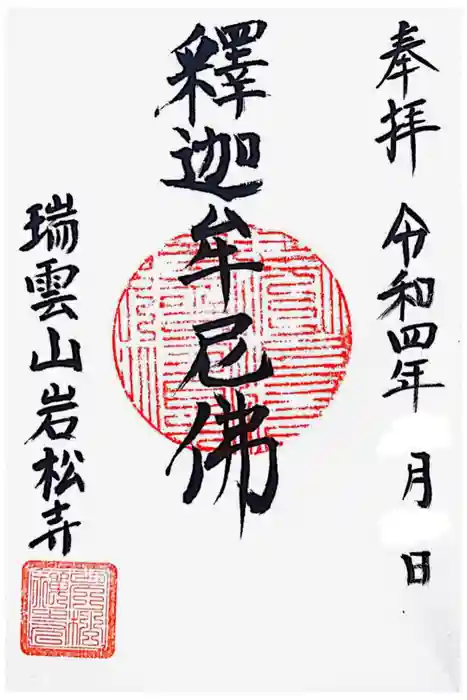 奉拝 令和四年 月 日
釋迦牟尼佛
瑞雲山岩松寺